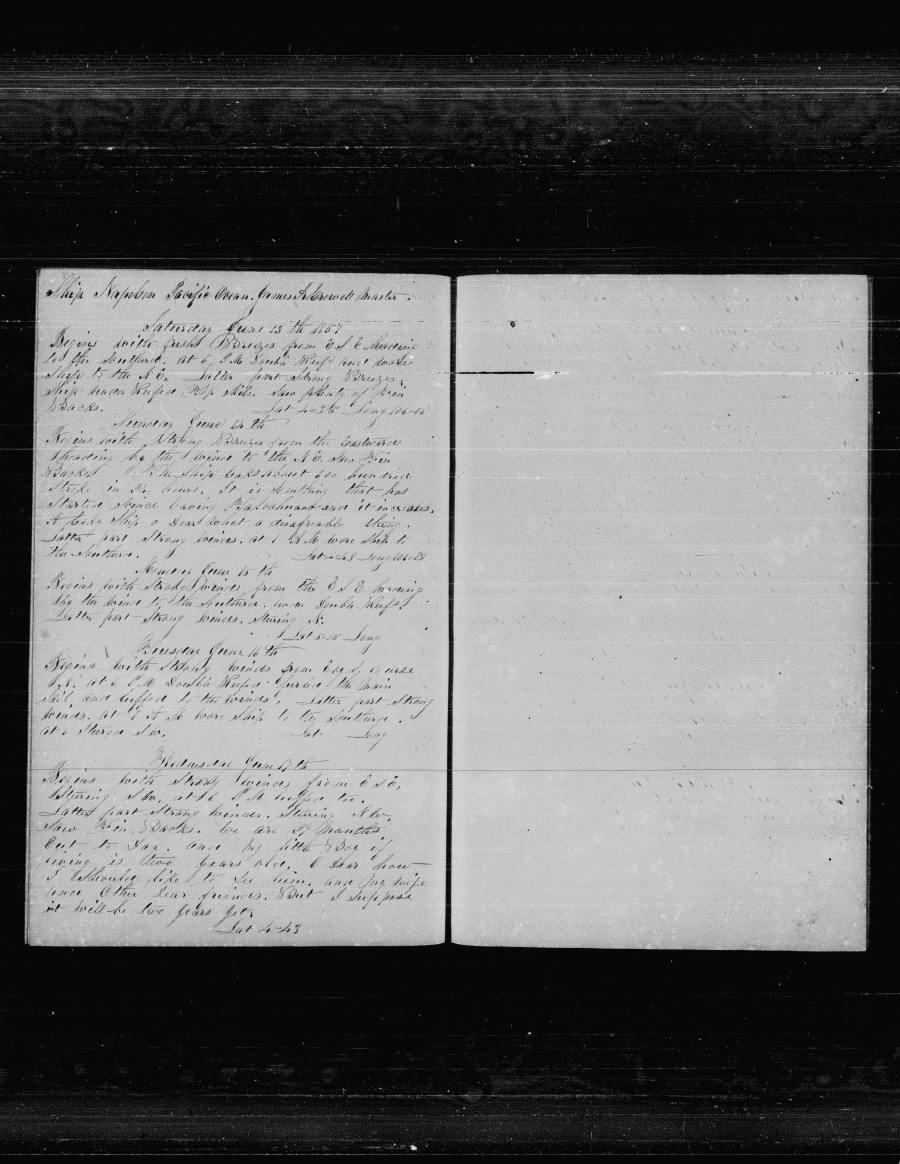 Ship Napoleon Pacific Ocean. James A Crowell Master.
Saturday June 13th 1857
Begins with fresh Breezes from E S E heading
to the Southerd. at 6 P.M. Double Reeft and wore
Ship to the N.E. Latter part Strong Breezes.
Ship under Reefed Top Sails. Saw plenty of Fin
Backs. Lat 4-36 Long 106-06
Sunday June 14 th
Begins with Strong Breezes from the Eastward
heading by the wind to the N.E. Saw Fin
Backs The Ship leaks about hundred
Stroke in 24 hours. It is somthing that has
started since leaving Talcahuano and it increases.
A leaky Ship o Dear what a disagreable thing.
Latter part Strong winds. at 1 A M wore Ship to
the Southerd. Lat 4-48 Long 106-13
Monday June 15 th
Begins with Strong winds from the E S E heading
by the wind to the Southerd. under Double Reefs.
Latter part Strong winds. Stearing N.
Lat 5-05 Long
Tuesday June 16 th
Begins with Strong winds from E S E course
at 6 P.M. Double Reefed furled the Main
Sail and luffed to the wind. Latter part Strong
winds. at 1 A M wore Ship to the Southerd.
at 6 Steared S W. Lat Long
Wednesday June 17 th
Begins with Strong winds from E S E.
Stearing S W. at 6 P M luffed too.
Latter part Strong winds. Stearing N W.
Saw Fin Backs. We are Months
Out to Day. and my little Boy if
living is two years old. O Dear how
I Should like to See him. and my wife
and Other Dear friends. But I Suppose
it will be two years yet.
Lat 4-43